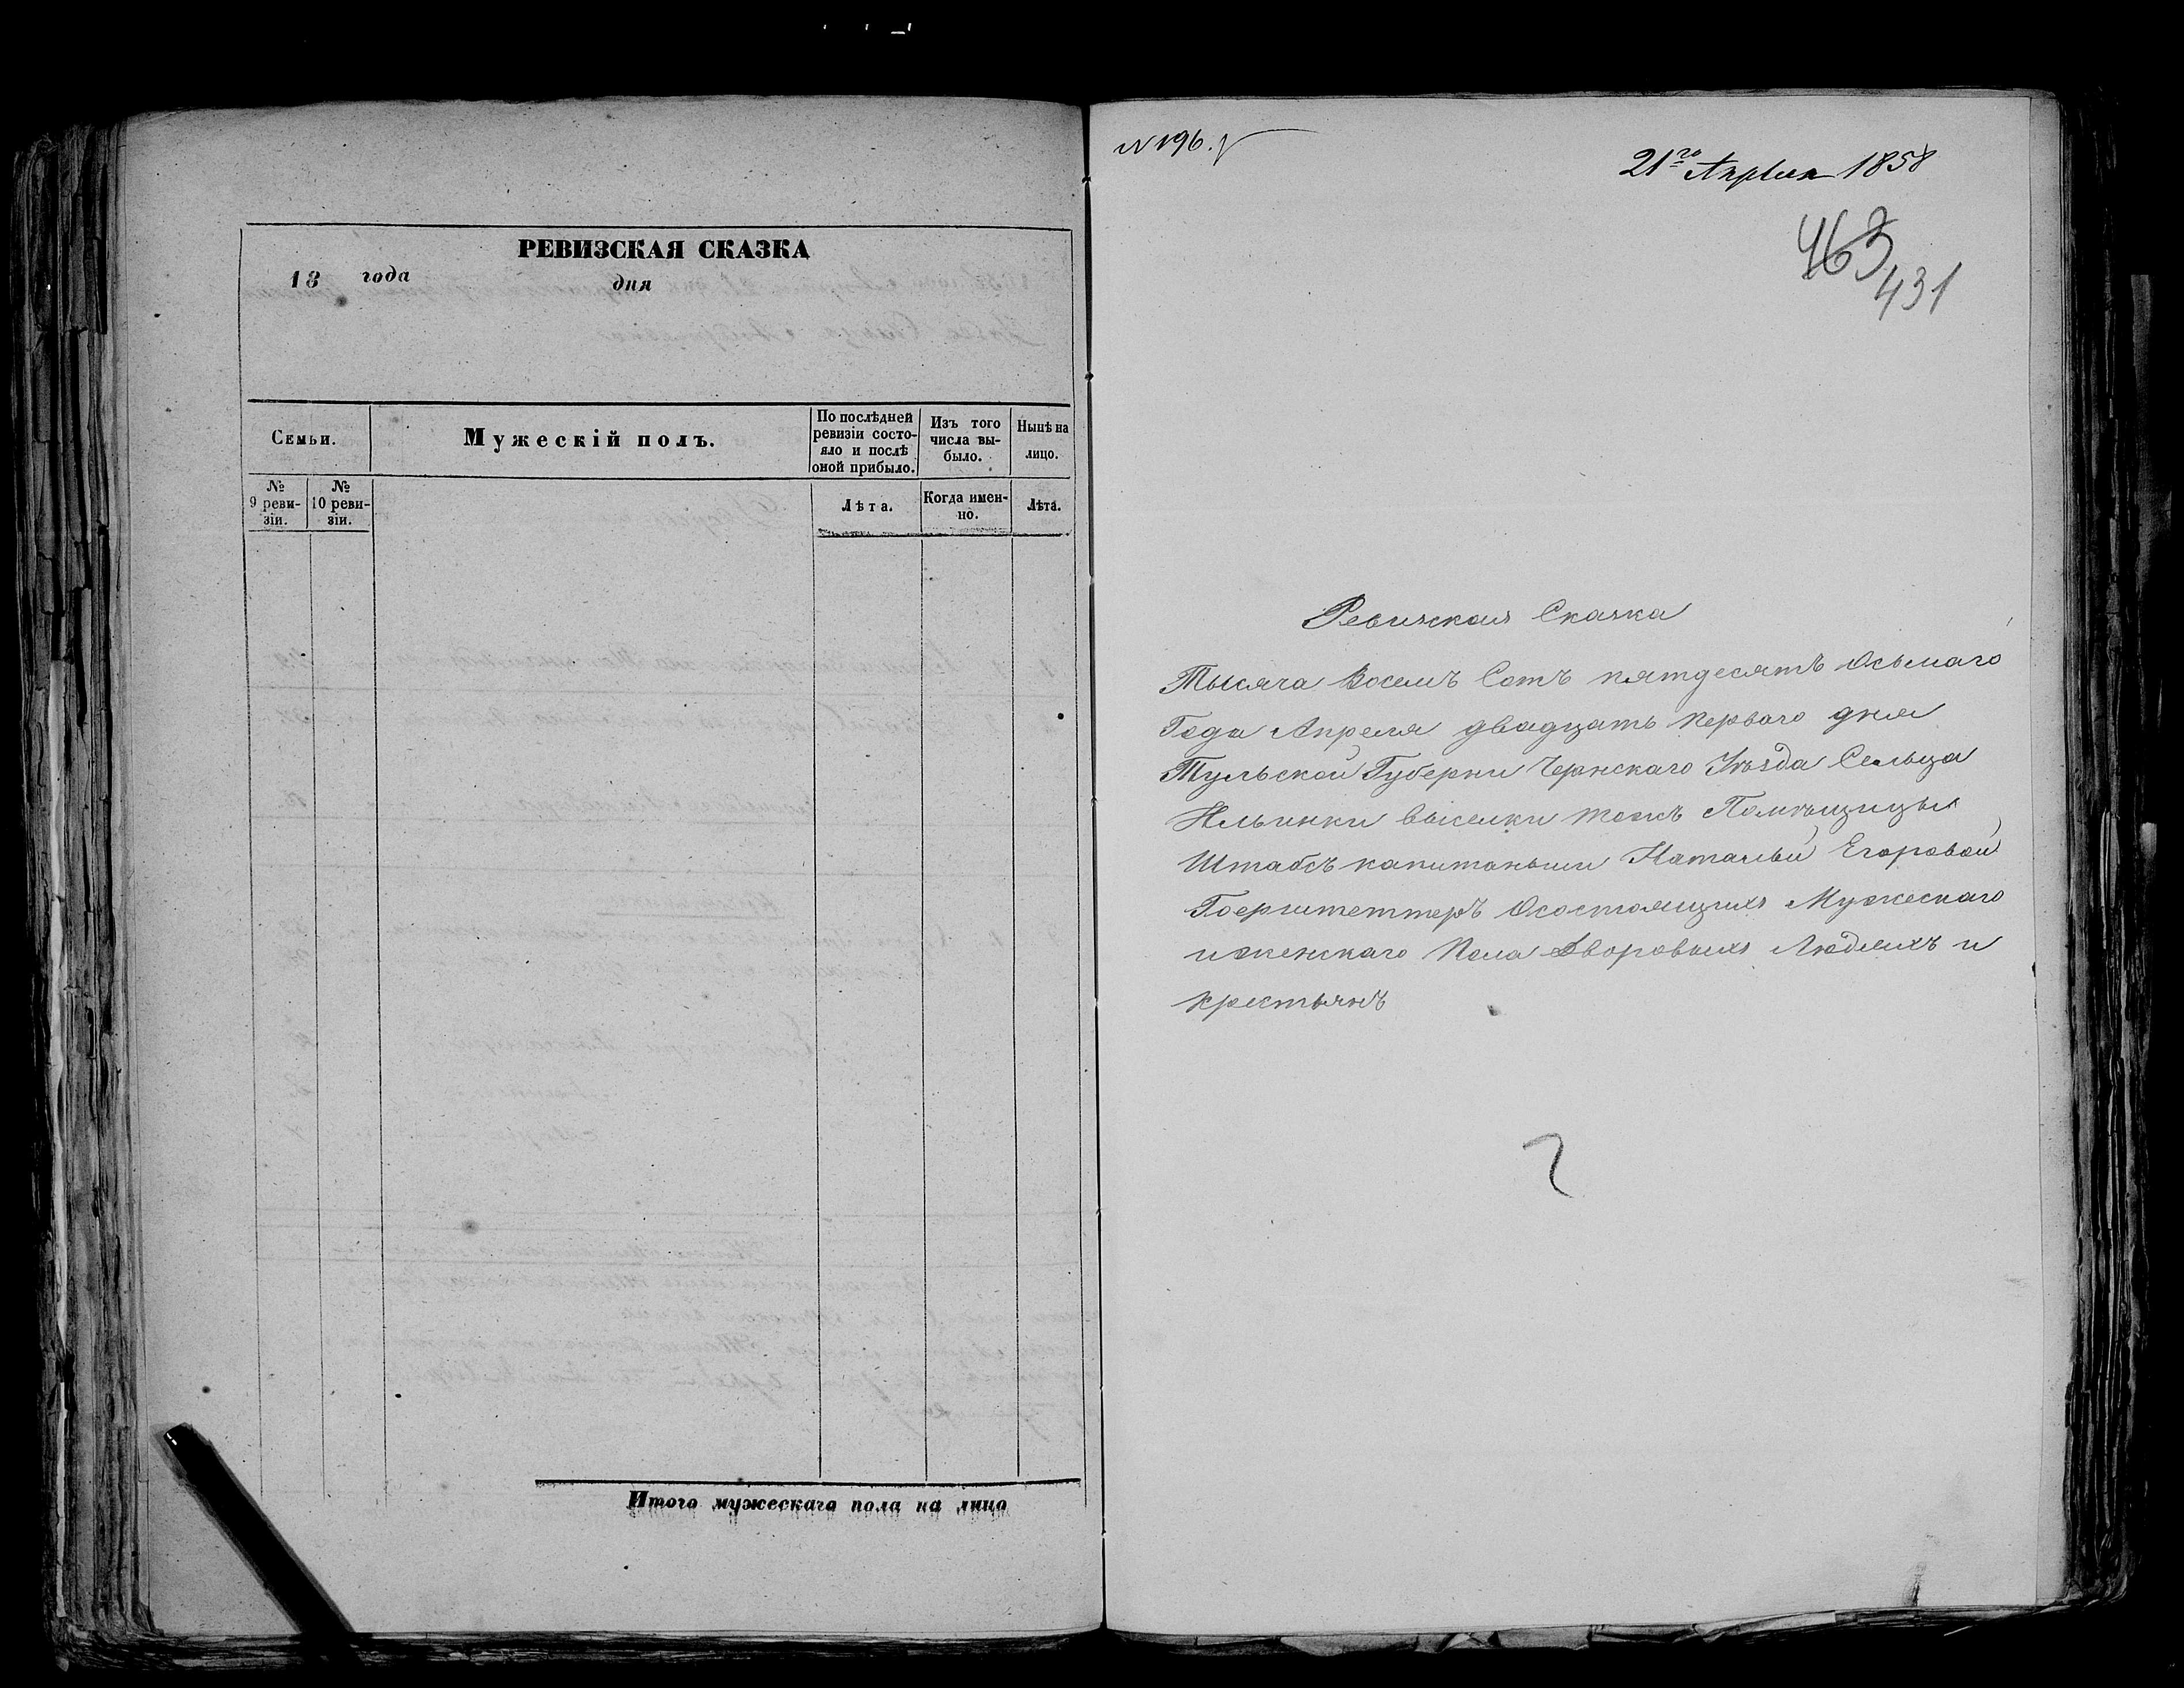 РЕВИЗСКАЯ СКАЗКА
18 года дня
Семьи.
Мужескій полъ.
По послѣдней ревизіи состо-
яло и послѣ оной прибыло.
Изъ того числа вы-
было.
Нынѣ на лицо.
№ 9 реви-
зіи.
№ 10 реви-
зіи.
Лѣта.
Когда имен-
но.
Лѣта.
Итого мужескаго пола на лицо
N 196.
21го Апрѣля 1858
463
431
Ревизская Сказка
Тысяча Восемъ Сотъ пятдесятъ Осьмаго
Года Апреля двадцать перваго дня
Тульской Губерни Чернскаго Уѣзда Сельца
Ильинки выселки тожъ Помѣщицы
Штабсъ капитаньши Натальи Егоровой
Гоерштеттеръ Осостоящихъ Мужескаго
и женскаго Пола Дворовыхъ Людехъ и
крестьянъ